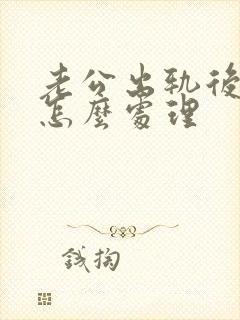 老公出轨後
怎麼處理
錢掏